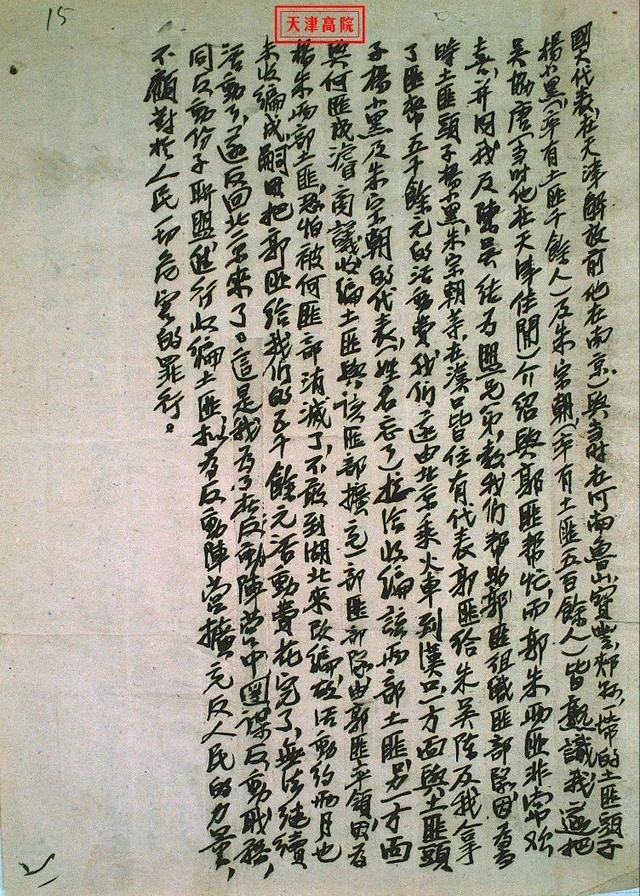 15
天津高院
國大代表，在天津解放前他在南京）與当时在河南魯山、寶豐、郏县一帶的土匪頭子
楊小黑（平有土匪千餘人）及朱宗朝（平有土匪五百餘人）皆認識我，遂把
吳協唐（当时他在天津住閒）介紹與郭匪帮忙，而郭朱兩匪非常欢
喜，并同我及陳吳結为盟兄弟，教我们帮助郭匪組織匪部隊，因为當
時土匪頭子楊小黑、朱宗朝等，在漢口皆住有代表，郭匪給朱吳陈及我拿
了匪幣五千餘元的活動費，我们遂由北京乘火車到漢口，一方面與土匪頭
子楊小黑及朱宗朝的代表（姓名忘了）接洽收編該兩部土匪，另一方面
與何匪成濬商議收編土匪與該匪部擴充一部匪部隊由郭匪平領，因为
楊朱兩部土匪，恐怕被何匪部消滅了，不敢到湖北来改編，故活動約兩月也
未收編成，嗣因把郭匪給我们的五千餘元活動費花完了，無法继續
活動了，遂反回北京来了。這是我为了在反動陣营中圖谋反動职務，
同反動份子聯盟进行收編土匪，拟为反動陣营擴充反人民的力量，
不顧對於人民一切危害的罪行。